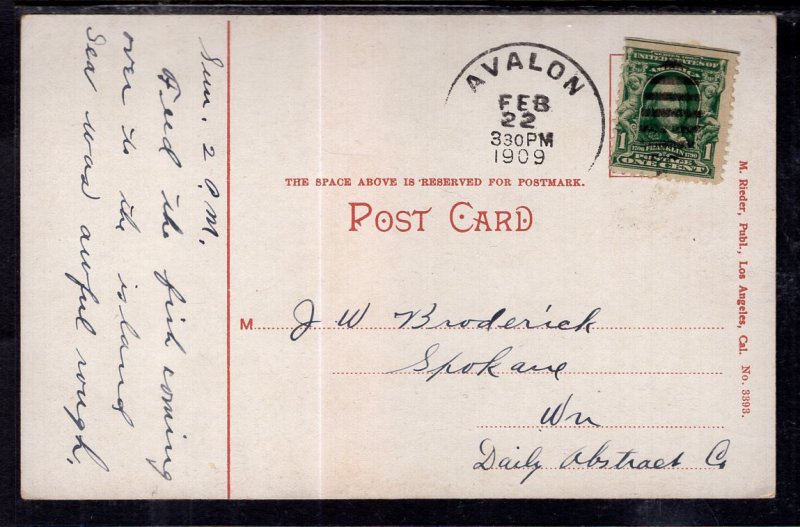 Sun. 2 P.M.
Feed the fish coming
over to the island
Sea was awful rough.
AVALON
FEB
22
330PM
1909
SERIES 1902
UNITED STATES OF
AMERICA
1 1706 FRANKLIN 1790 1
POSTAGE
ONE CENT
THE SPACE ABOVE IS RESERVED FOR POSTMARK.
POST CARD
M. J W Broderick
Spokane
Wn
Daily Abstract Co
M. Rieder, Publ., Los Angeles, Cal. No. 3393.